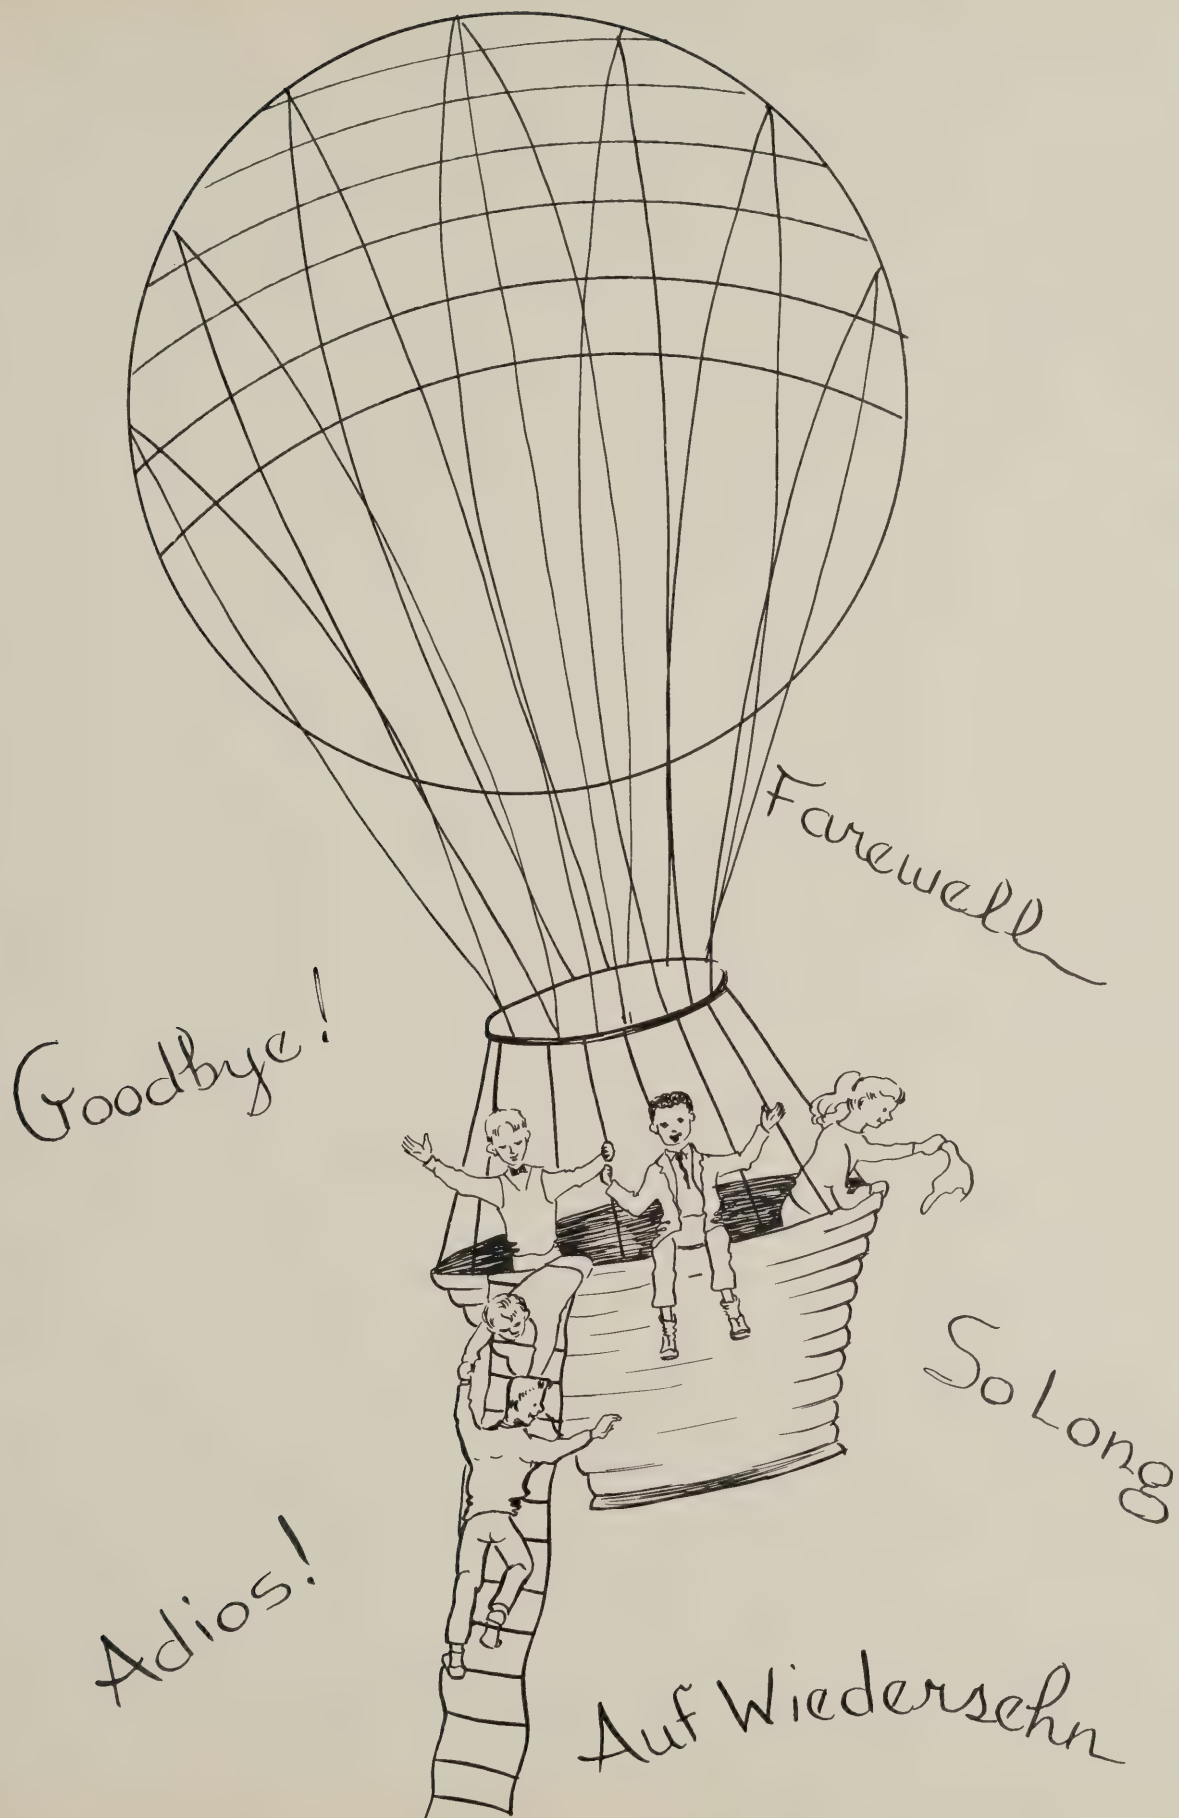 Farewell
Goodbye!
So Long
Adios!
Auf Wiedersehn